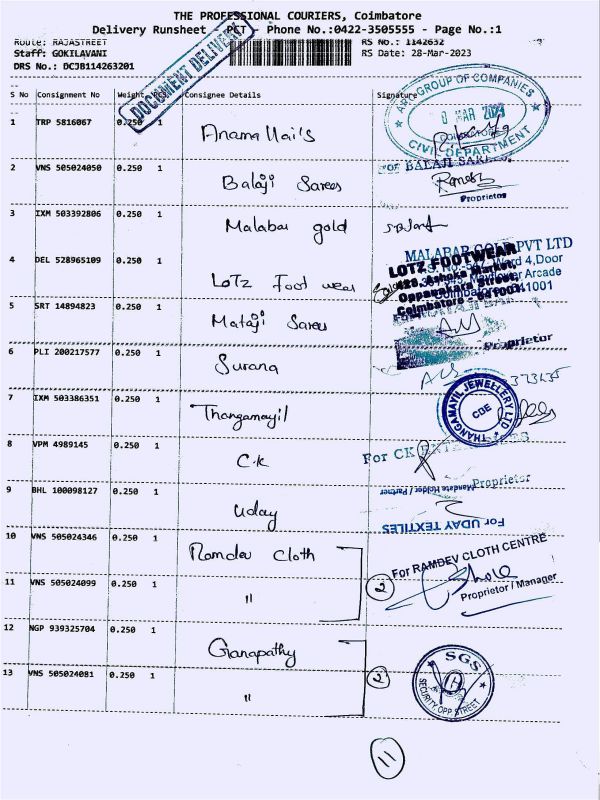 THE PROFESSIONAL COURIERS, Coimbatore
Delivery Runsheet - PCT - Phone No.:0422-3505555 - Page No.:1
Route: RAJASTREET
RS No.: 1142632
Staff: GOKILAVANI
RS Date: 28-Mar-2023
DRS No.: DCJB114263201
DOCUMENT DELIVERY
S No Consignment No Weight PCS. Consignee Details Signature
GROUP OF COMPANIES
MAR
CIVIL DEPARTMENT
1 TRP 5816067 0.250 1 Anamallai's
BALAJI
2 VNS 505024050 0.250 1 Balaji Sarees
Proprietor
3 IXM 503392806 0.250 1 Malabar gold
MALABAR GOLD PVT LTD
4 DEL 528965109 0.250 1 LoTz Foot wear
LOTZ FOOTWEAR
Ward 4,Door
Arcade
641001
5 SRT 14894823 0.250 1 Mataji Sarees
Proprietor
6 PLI 200217577 0.250 1 Surana
7 IXM 503386351 0.250 1 Thangamayil
THANGAMAYIL JEWELLERY LTD
CBE
8 VPM 4989145 0.250 1 C.K
For CK
Proprietor
9 BHL 100098127 0.250 1 Uday
Mandate Holder / Partner
For UDAY TEXTILES
10 VNS 505024346 0.250 1 Ramdev Cloth
For RAMDEV CLOTH CENTRE
Proprietor / Manager
11 VNS 505024099 0.250 1 "
2
12 NGP 939325704 0.250 1 Ganapathy
SGS
SECURITY, OPP STREET
13 VNS 505024081 0.250 1 "
2
11